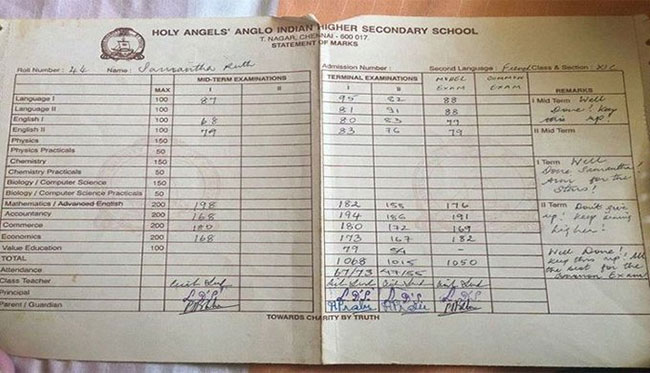 HOLY ANGELS' ANGLO INDIAN HIGHER SECONDARY SCHOOL
T. NAGAR, CHENNAI - 600 017.
STATEMENT OF MARKS
Roll Number : 44 Name : Samantha Ruth Admission Number : Second Language : French Class & Section : XII C
MID-TERM EXAMINATIONS TERMINAL EXAMINATIONS MODEL EXAM COMMON EXAM REMARKS
MAX I II I II
Language I 100 87 95 82 88
Language II 100 81 91 88
English I 100 68 80 83 77
English II 100 79 83 76 79
Physics 150
Physics Practicals 50
Chemistry 150
Chemistry Practicals 50
Biology / Computer Science 150
Biology / Computer Science Practicals 50
Mathematics / Advanced English 200 198 182 155 176
Accountancy 200 168 194 186 191
Commerce 200 180 180 172 169
Economics 200 168 173 167 182
Value Education 100 79 54 -
TOTAL 1068 1015 1050
Attendance 67/73 47/55
Class Teacher
Principal
Parent / Guardian
I Mid Term Well Done! Keep this up!
II Mid Term
I Term Well Done Samantha Aim for the Stars!
II Term Don't give up! Keep aiming higher!
Well Done! Keep this up! All the best for the Common Exam!
TOWARDS CHARITY BY TRUTH